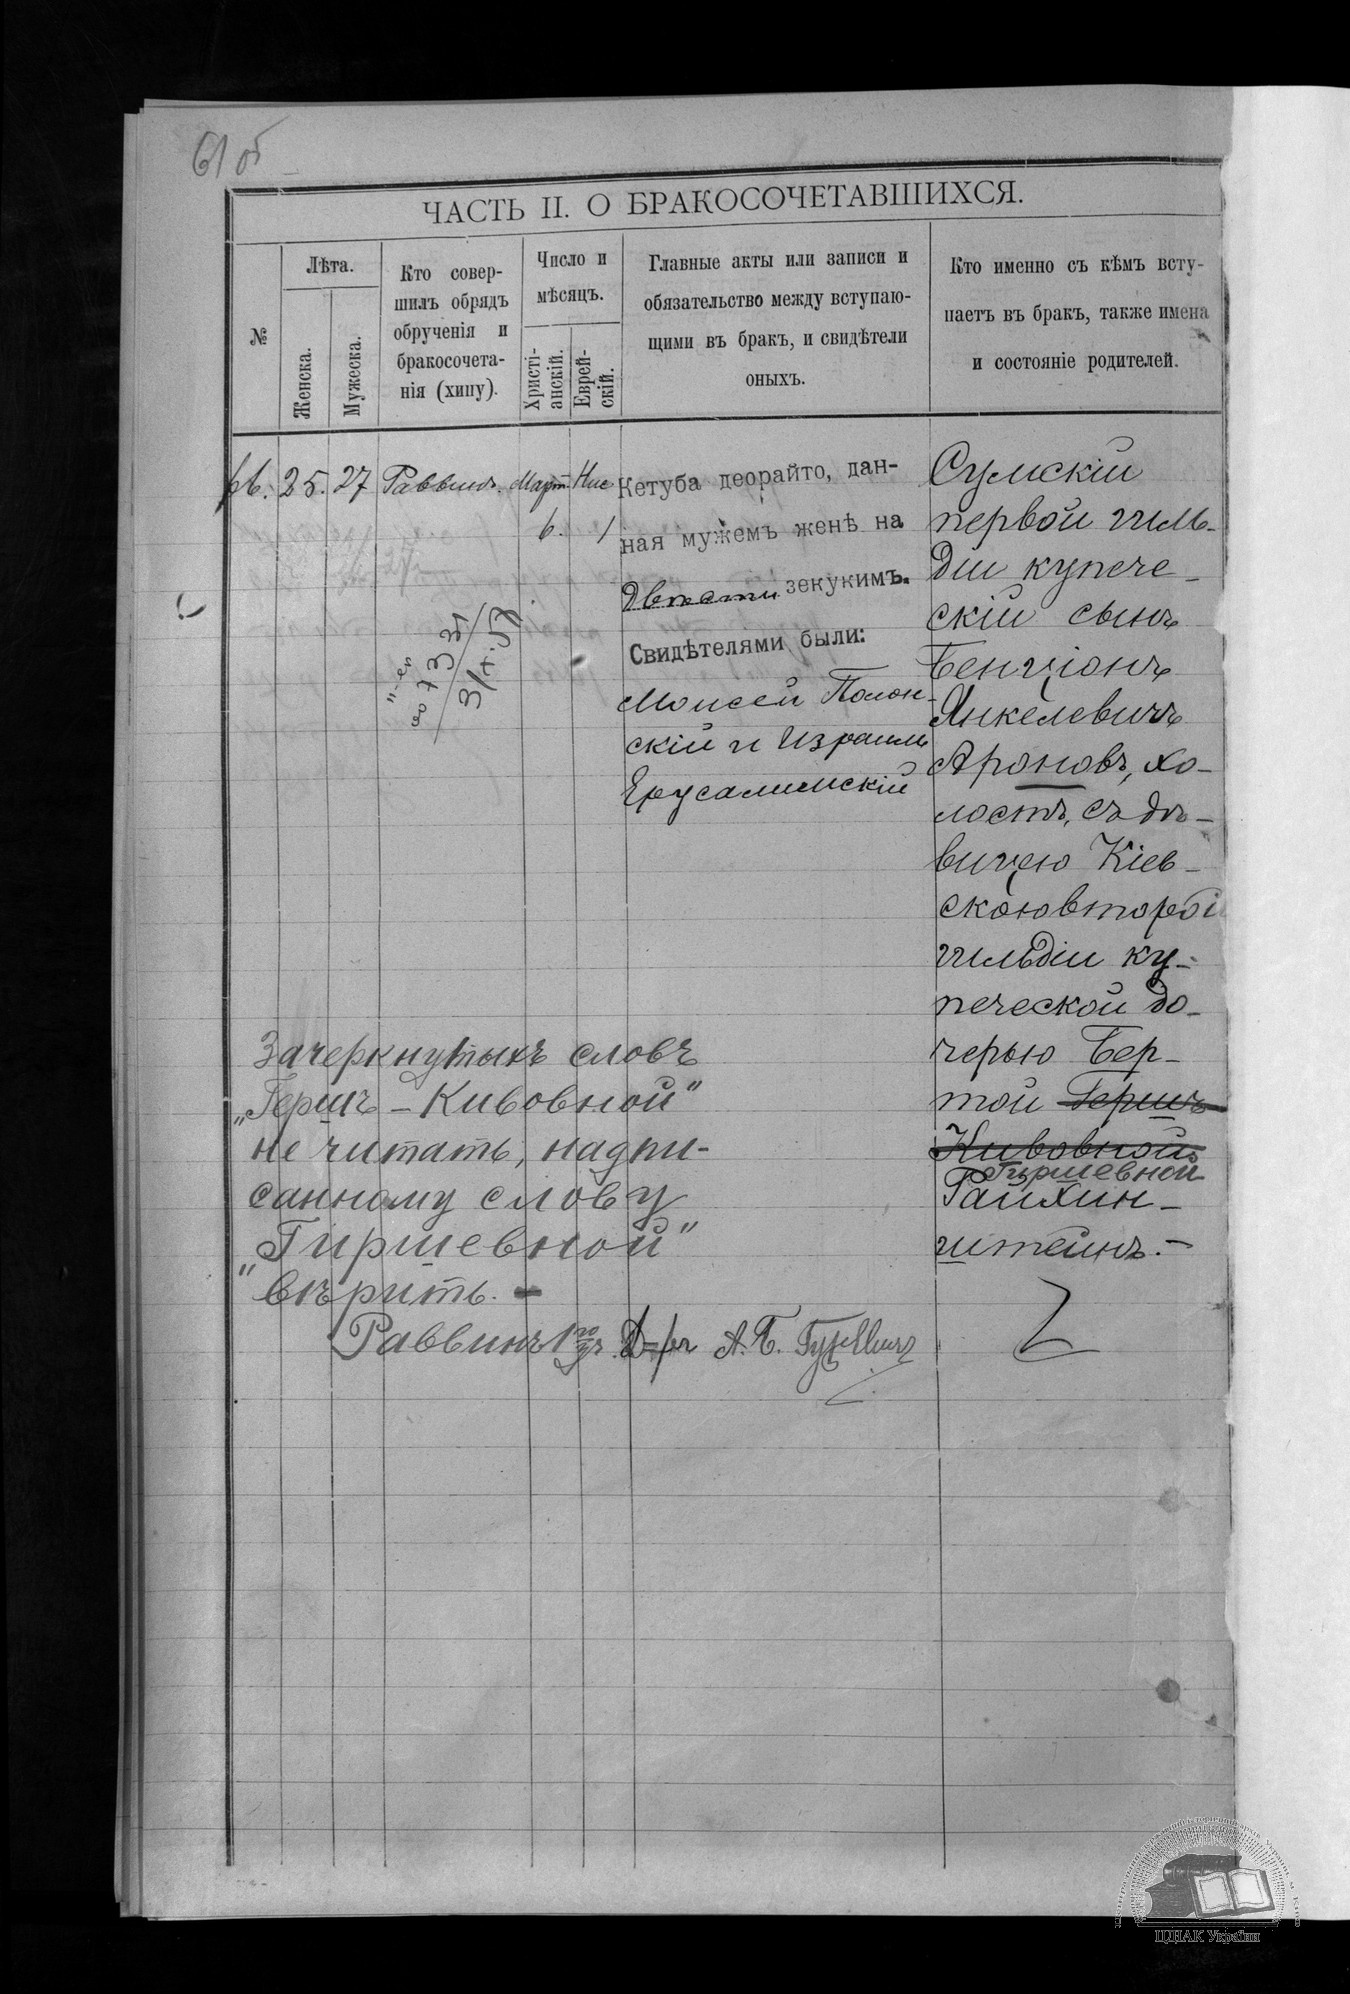 61 об
ЧАСТЬ II. О БРАКОСОЧЕТАВШИХСЯ.
№
Лѣта.
Женска.
Мужеска.
Кто совер-
шилъ обрядъ
обрученія и
бракосочета-
нія (хипу).
Число и
мѣсяцъ.
Христі-
анскій.
Еврей-
скій.
Главные акты или записи и
обязательство между вступаю-
щими въ бракъ, и свидѣтели
оныхъ.
Кто именно съ кѣмъ всту-
паетъ въ бракъ, также имена
и состояніе родителей.
25. 27 Раввинъ. Март. Нис
6. 1
Кетуба деорайто, дан-
ная мужемъ женѣ на
двѣсти зекукимъ.
Свидѣтелями были:
Моисей Полон-
скій и Израиль
Ерусалимскій
Сумскій
первой гиль-
діи купече-
скій сынъ
Бенціонъ
Янкелевичъ
Ароновъ, хо-
лостъ, съ дѣ-
вицею Кіев-
скою второй
гильдіи ку-
печеской до-
черью Бер-
той Гершъ
Кивовной
Гиршевной
Райхин-
штейнъ.-
31/X.57
Зачеркнутыхъ словъ
„Гершъ-Кивовной"
не читать, надпи-
санному слову
„Гиршевной"
вѣрить.-
Раввинъ Д-ръ А. Б. Гуревичъ
ЦДІАК України